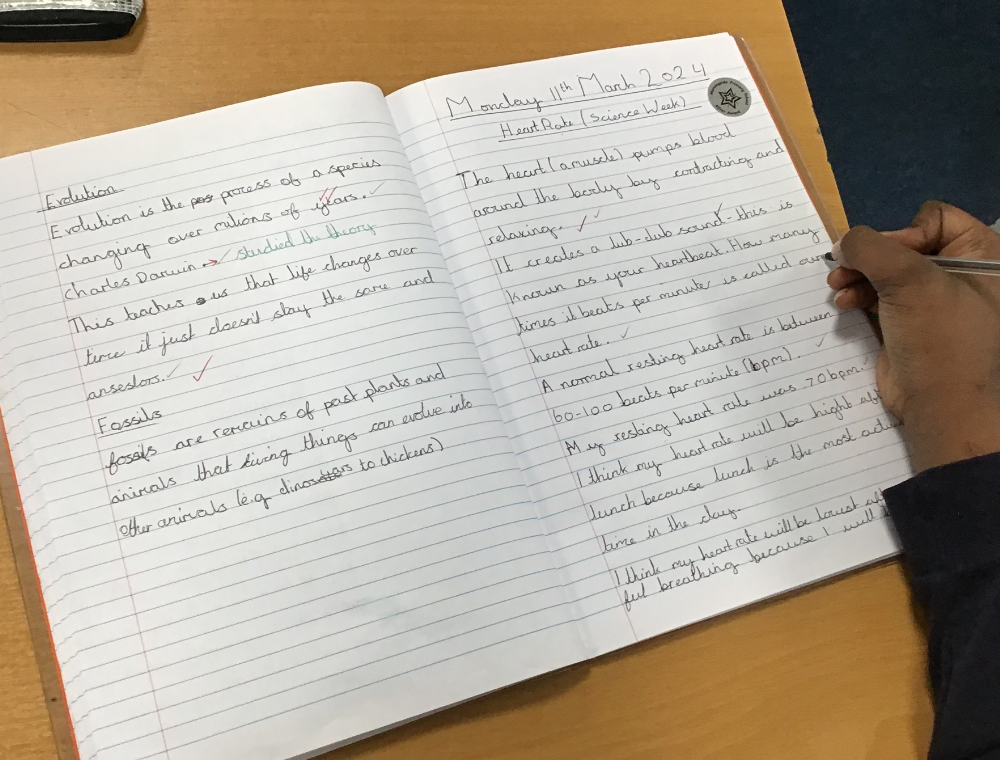 Evolution
Evolution is the process of a species
changing over milions of years.
Charles Darwin → studied the theory
This teaches us that life changes over
time it just doesn't stay the same and
ansestors.
Fossils
fossils are remains of past plants and
animals that living things can evolve into
other animals (e.g dinosars to chickens)
Monday 11th March 2024
Heart Rate (Science Week)
The heart (a muscle) pumps blood
around the body by contracting and
relaxing.
It creates a lub-dub sound - this is
known as your heartbeat. How many
times it beats per minute is called our
heart rate.
A normal resting heart rate is between
60-100 beats per minute (bpm).
My resting heart rate was 70bpm.
I think my heart rate will be hight
lunch because lunch is the most
time in the day.
I think my heart rate will be lowest
ful breathing because I will